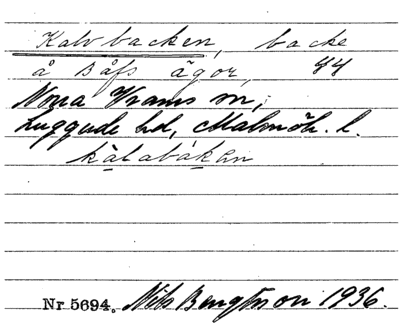 Kalvbacken, backe
å Båfs ägor, YY
Norra Vrams sn,
Luggude hd, Malmöh. l.
kàlabákan
Nr 5694. Nils Bengtsson 1936.